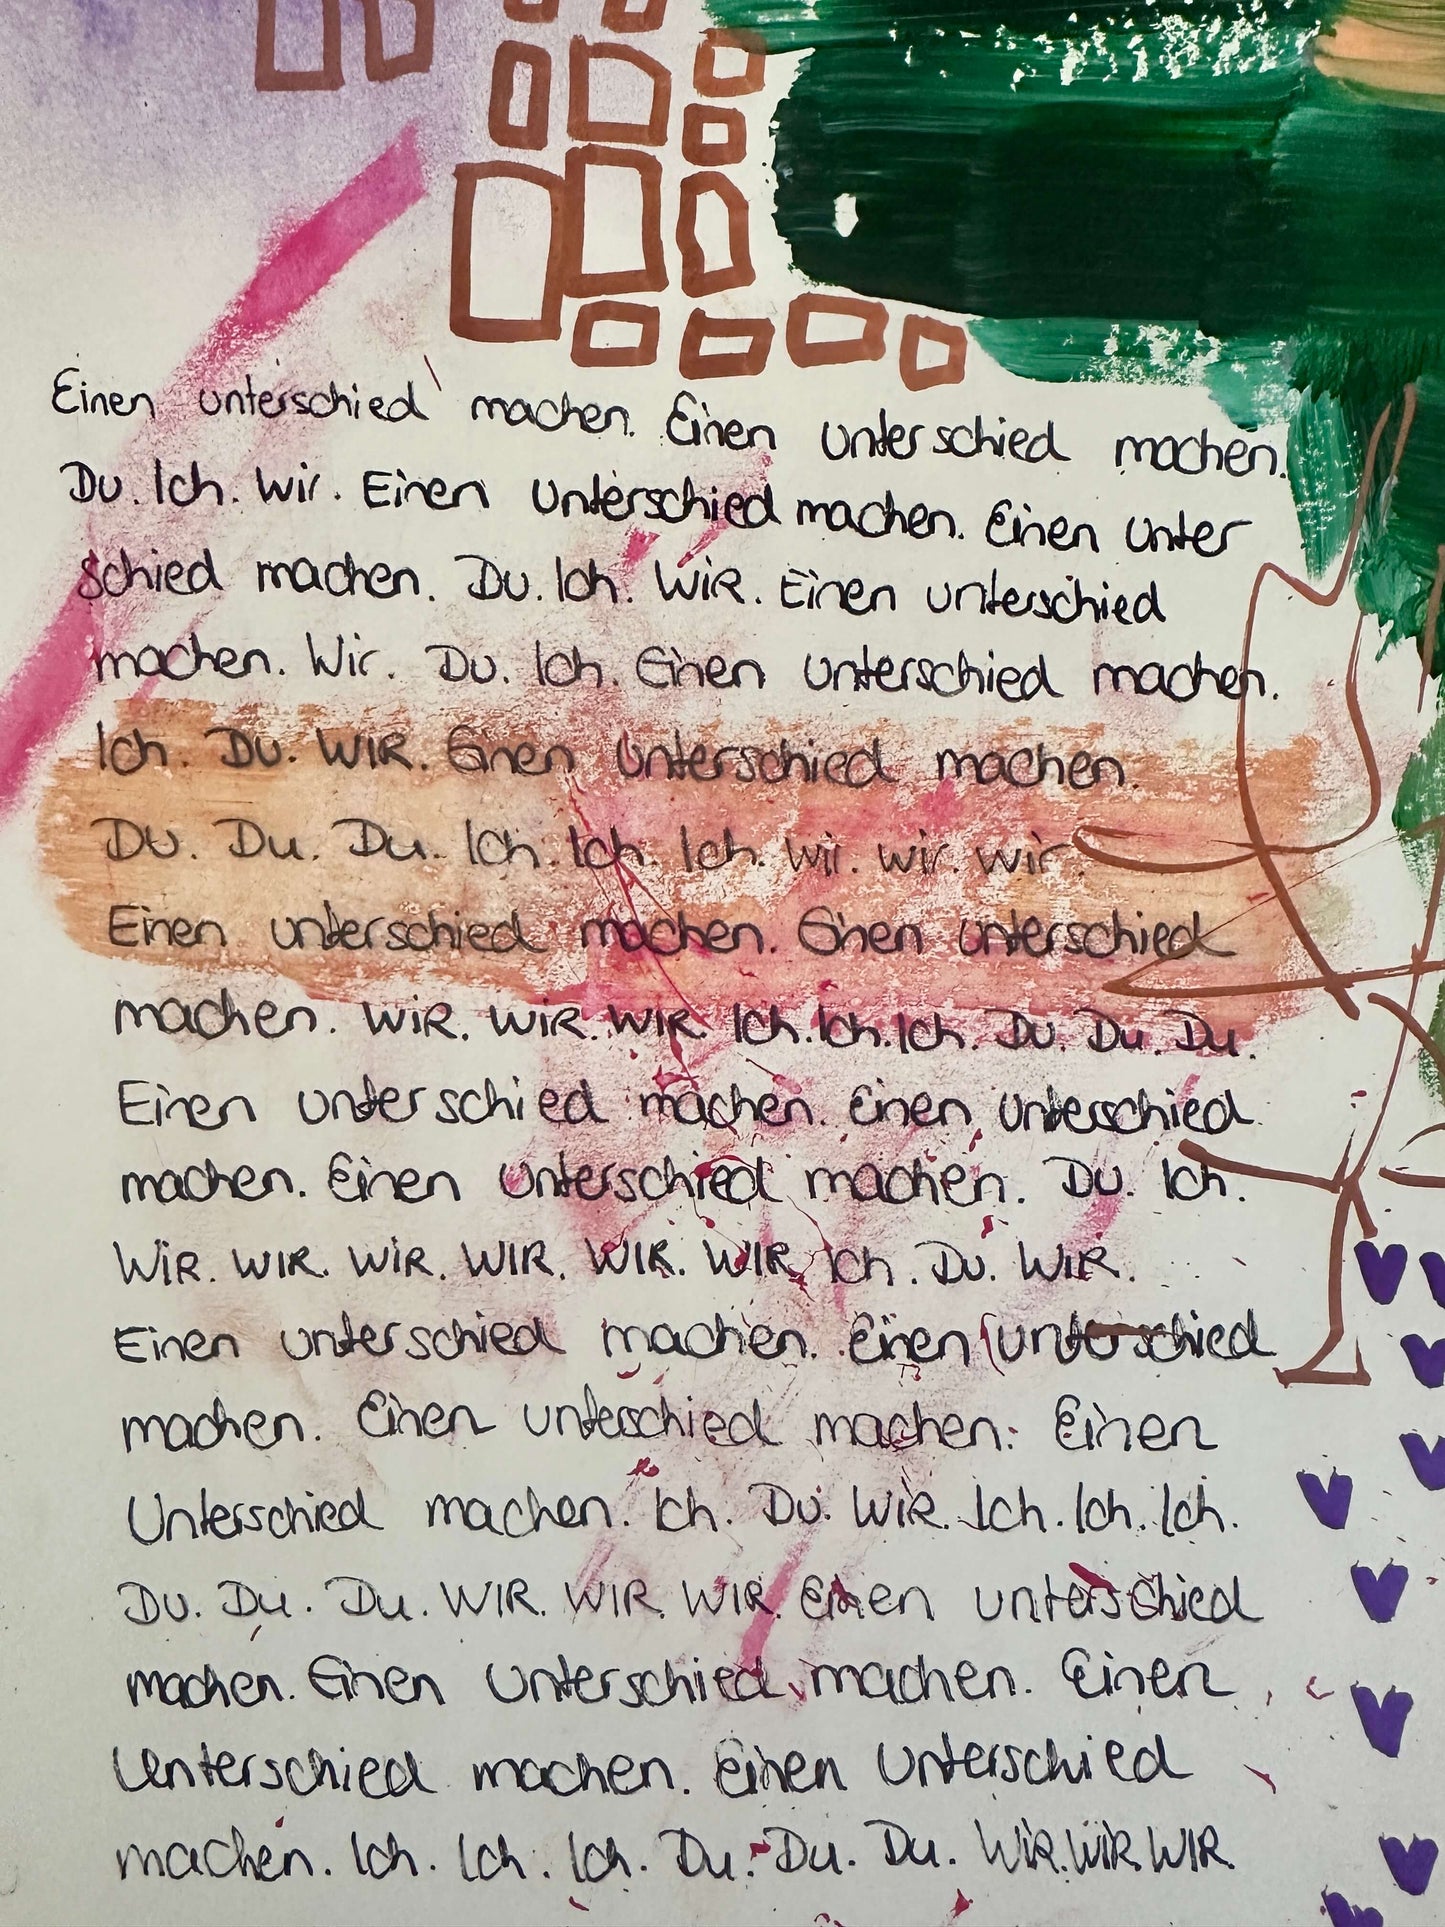 Einen unterschied machen. Einen unterschied machen.
Du. Ich. Wir. Einen Unterschied machen. Einen unter
schied machen. Du. Ich. WiR. Einen unterschied
machen. Wir. Du. Ich. Einen unterschied machen.
Ich. Du. WIR. Einen unterschied machen.
Du. Du. Du. Ich. Ich. Ich. wir. wir. wir.
Einen unterschied machen. Einen unterschied
machen. WiR. WiR. WIR. Ich. Ich. Ich. Du. Du. Du.
Einen unterschied machen. Einen unterschied
machen. Einen unterschied machen. Du. Ich.
WiR. WIR. WiR. WIR. WIR. WIR. Ich. Du. WIR.
Einen unterschied machen. Einen unterschied
machen. Einen unterschied machen. Einen
Unterschied machen. Ich. Du. WiR. Ich. Ich. Ich.
Du. Du. Du. WIR. WIR. WIR. Einen unterschied
machen. Einen Unterschied machen. Einen
Unterschied machen. Einen Unterschied
machen. Ich. Ich. Ich. Du. Du. Du. WiR. WiR. WIR.